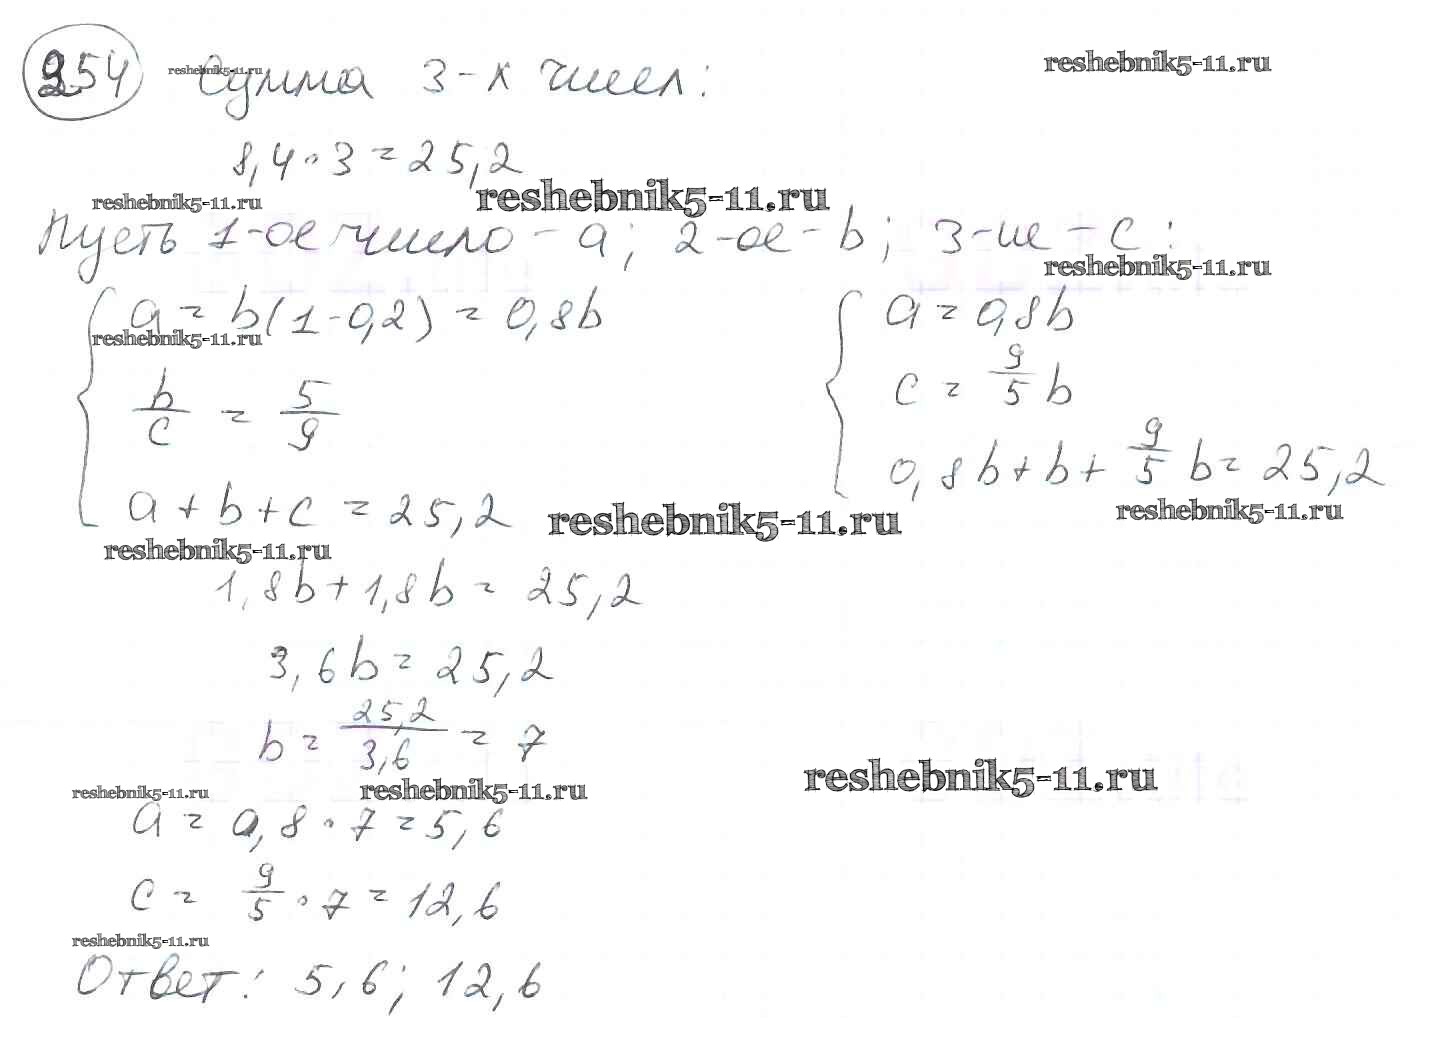 254 Сумма 3-х чисел:
reshebnik5-11.ru reshebnik5-11.ru
8,4 · 3 = 25,2
reshebnik5-11.ru reshebnik5-11.ru
Пусть 1-ое число - a; 2-ое - b; 3-ие - c:
reshebnik5-11.ru
a = b(1-0,2) = 0,8b
a = 0,8b
reshebnik5-11.ru
b/c = 5/9
c = 9/5 b
a + b + c = 25,2
0,8b + b + 9/5 b = 25,2
reshebnik5-11.ru reshebnik5-11.ru
reshebnik5-11.ru
1,8b + 1,8b = 25,2
3,6b = 25,2
b = 25,2/3,6 = 7
reshebnik5-11.ru reshebnik5-11.ru reshebnik5-11.ru
a = 0,8 · 7 = 5,6
c = 9/5 · 7 = 12,6
reshebnik5-11.ru
Ответ: 5,6; 12,6